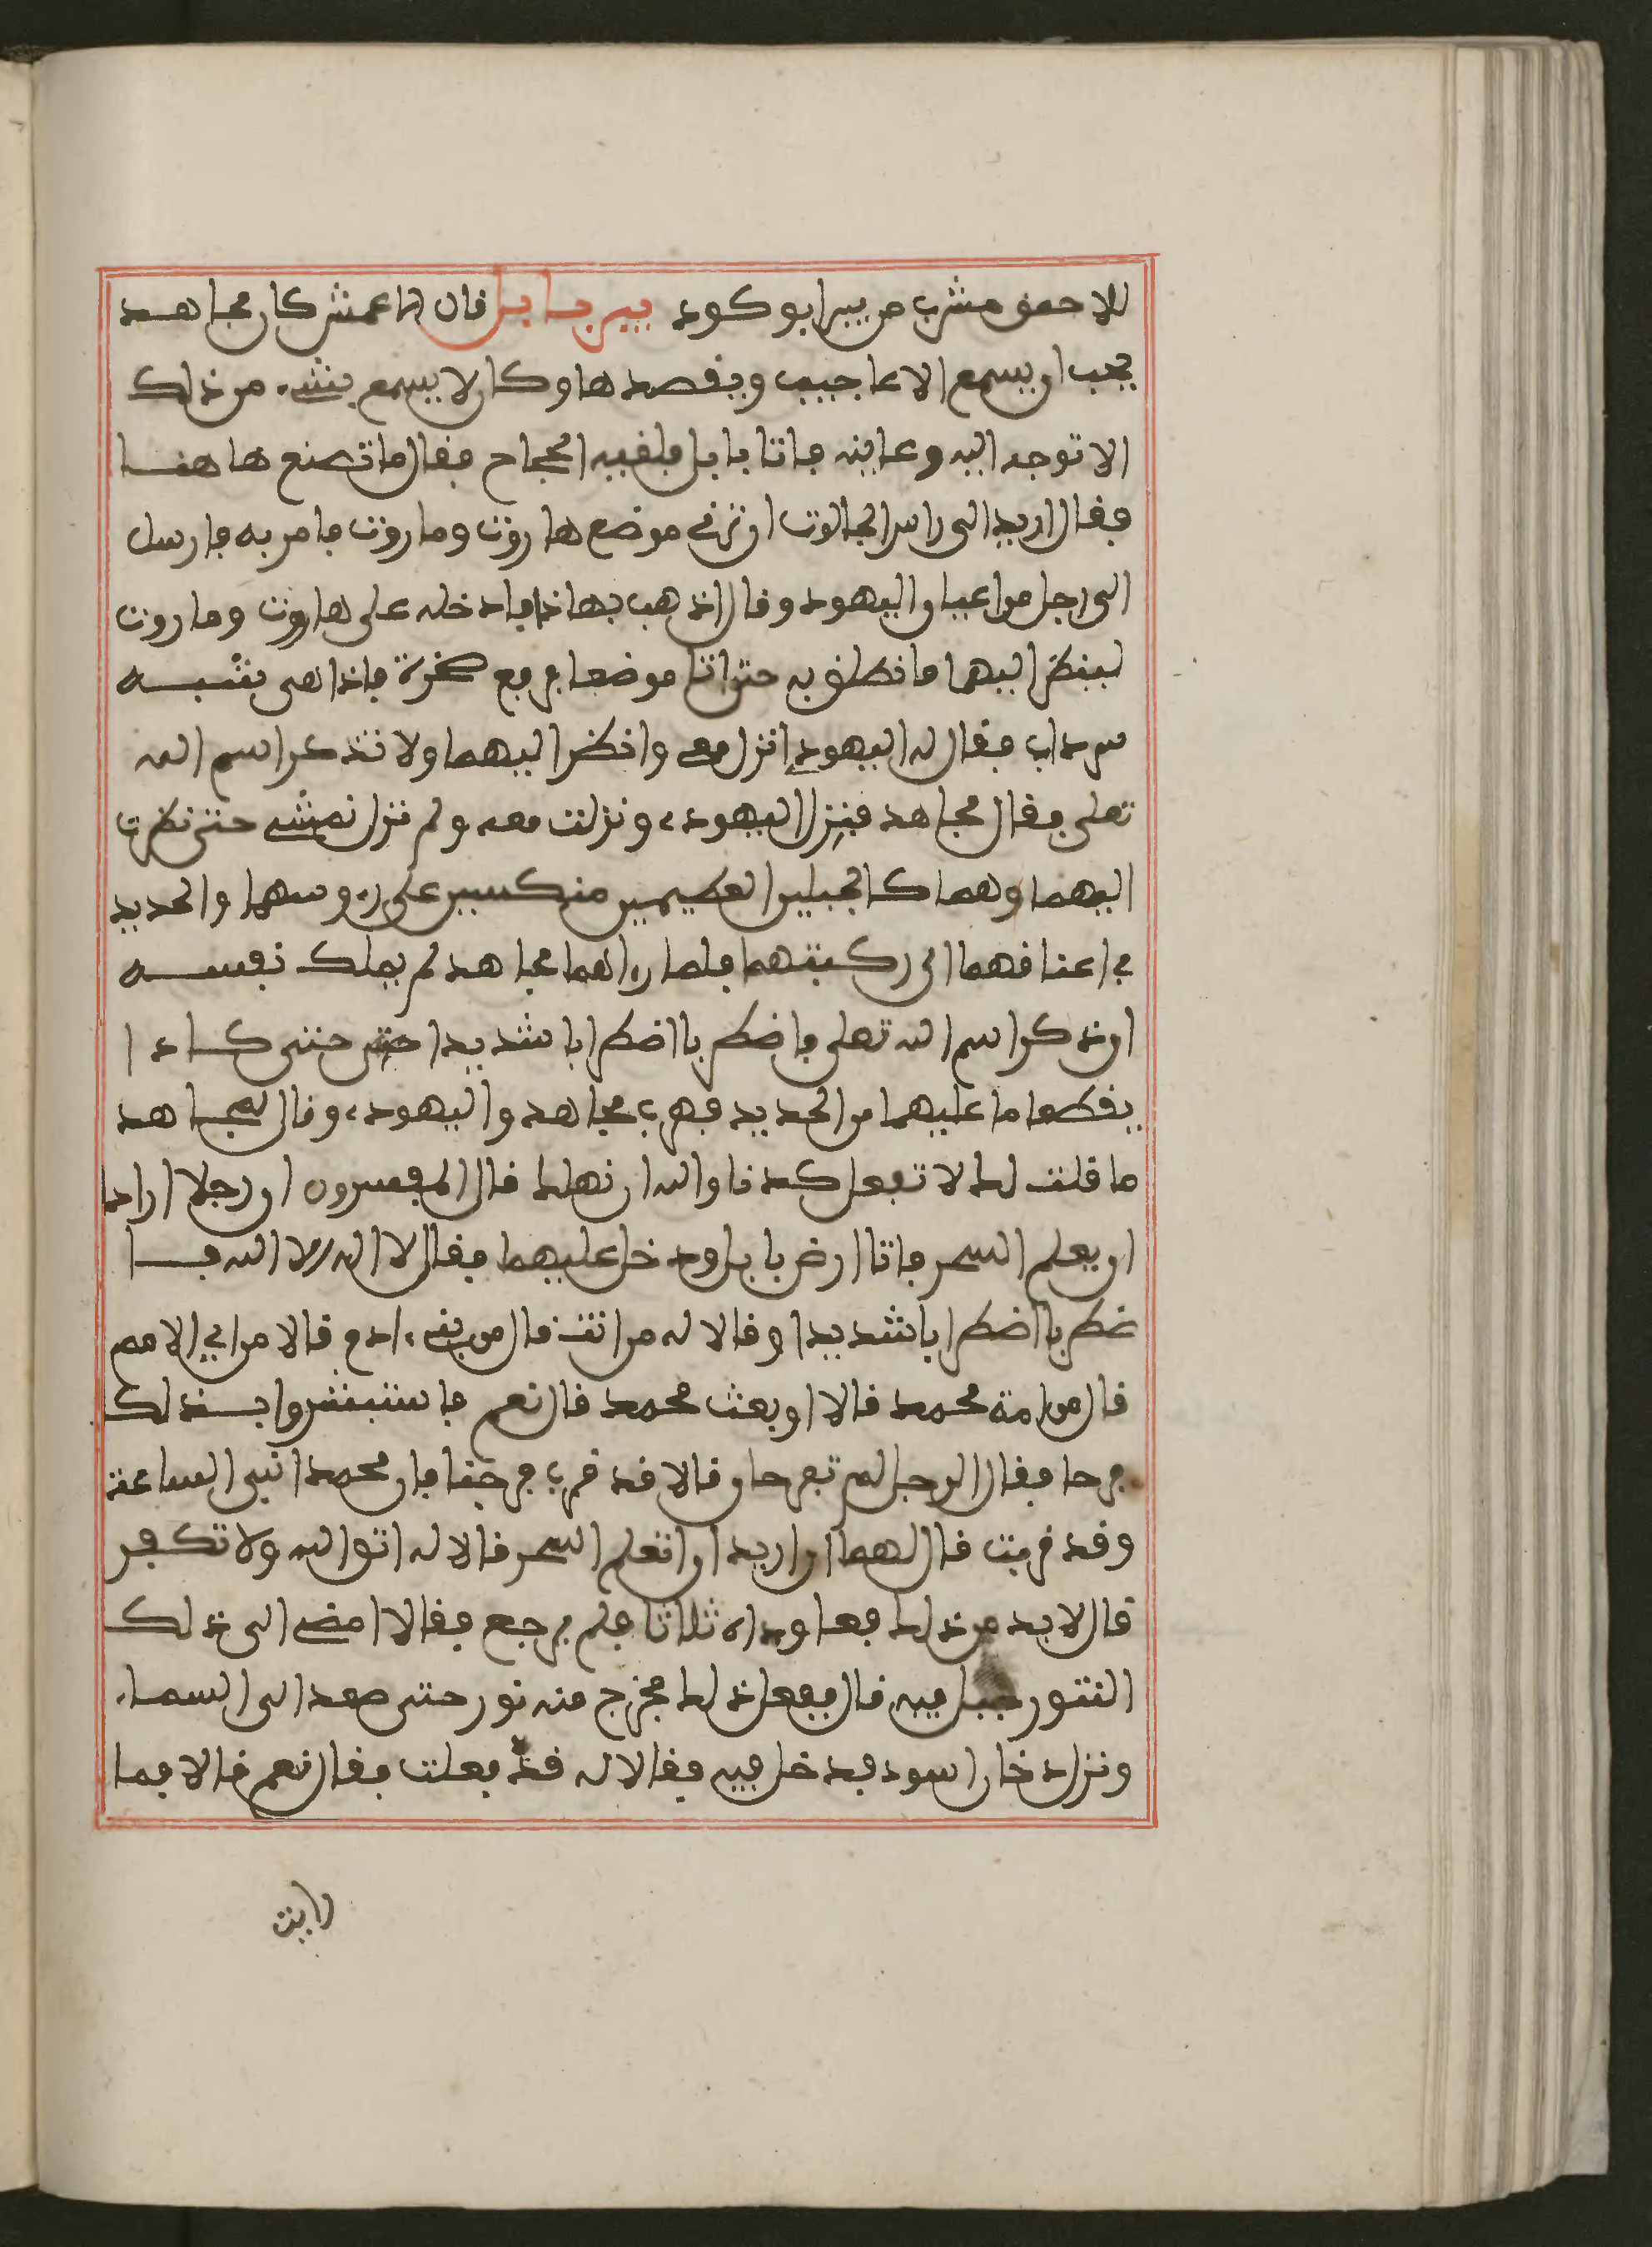 للاحمق مشرب من بير ابو كود بير بابل قال الاعمش كان مجاهد
يحب ان يسمع الاعاجيب ويقصدها وكان لا يسمع بشيء من ذلك
الا توجه اليه وعاينه فاتا بابل فلقيه الحجاج فقال ما تصنع هاهنا
فقال اريد الى راس الجالوت ان ترني موضع هاروت وماروت فامر به فارسل
الى رجل من اعيان اليهود وقال اذهب بهاذا فادخله على هاروت وماروت
لينظر اليهما فانطلق به حتى اتا موضعا فرفع صخرة فاذا هي شبه
سرداب فقال له اليهودي انزل معي وانظر اليهما ولا تذكر اسم الله
تعلى فقال مجاهد فنزل اليهودي ونزلت معه ولم نزل نمشي حتى نظرت
اليهما وهما كالجبلين العظيمين منكسين على رءوسهما والحديد
في اعناقهما الى ركبتهما فلما رءاهما مجاهد لم يملك نفسه
ان ذكر اسم الله تعلى فاضطربا اضطرابا شديدا حتى حتى كادا
يقطعا ما عليهما من الحديد فهرب مجاهد واليهودي وقال لمجاهد
ما قلت لك لا تفعل كدنا والله ان نهلك قال المفسرون ان رجلا اراد
ان يعلم السحر فاتا ارض بابل ودخل عليهما فقال لا اله الا الله فا
ضطربا اضطرابا شديدا وقالا له من انت قال من بني ءادم قالا من اي الامم
قال من امة محمد قالا او بعث محمد قال نعم فاستبشروا بذلك
فرحا فقال الرجل لم تفرحان قالا قد قرب فرجنا فان محمدا نبي الساعة
وقد قربت قال لهما ان اريد ان اتعلم السحر قالا له اتق الله ولا تكفر
قال لا بد من ذلك فعاوداه ثلاثا فلم يرجع فقالا امض الى ذلك
التنور فبل فيه قال ففعل ذلك فخرج منه نور حتى صعد الى السماء
ونزل دخان اسود فدخل فيه فقالا له قد فعلت فقال نعم قالا فما
رايت